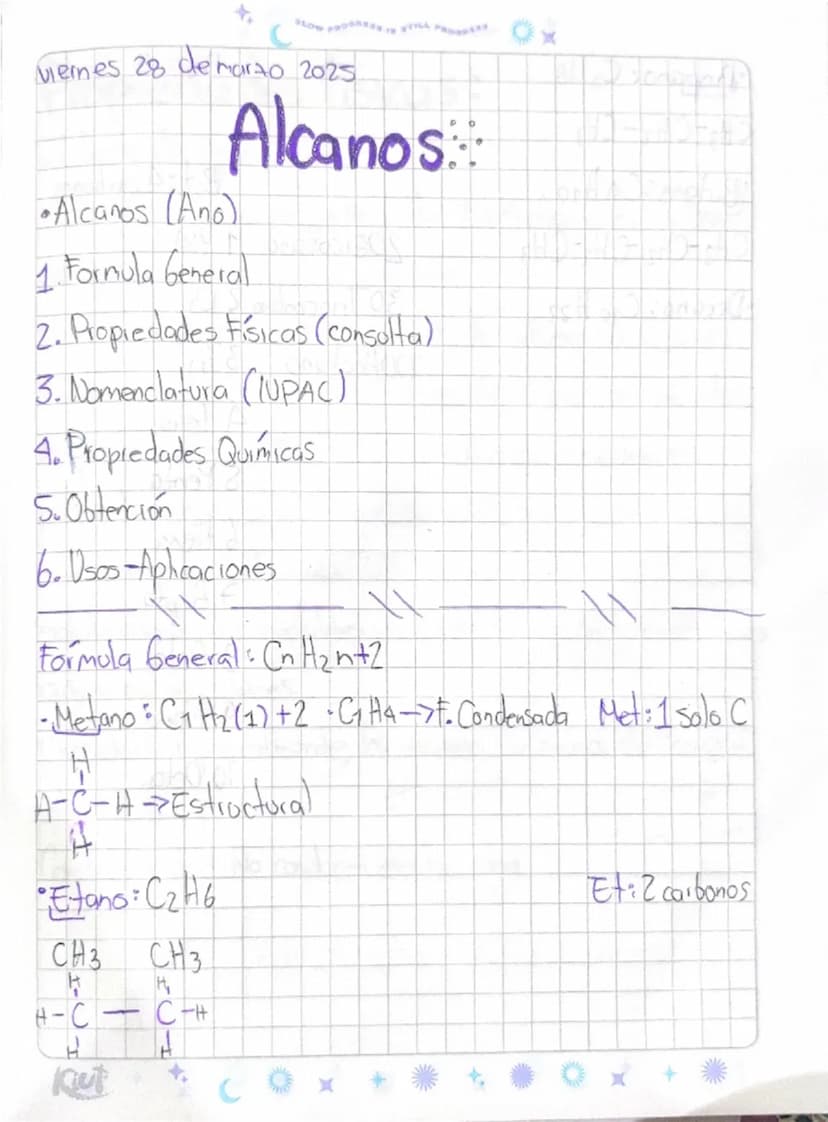 SLOW PROGRESS IS STILL PROGRESS
viernes 28 de marzo 2025
Alcanos
•Alcanos (Ano)
1. Formula General
2. Propiedades Físicas (consulta)
3. Nomenclatura (IUPAC)
4. Propiedades Químicas
5. Obtención
6. Usos-Aplicaciones
Fórmula General: CnH2n+2
·Metano: C1H2(1)+2 · C1H4→F. Condensada Met: 1 solo C
H
H-C-H →Estructural
H
•Etano: C2H6 Et: 2 carbonos
CH3 CH3
H H
H-C — C-H
H H
Kiut